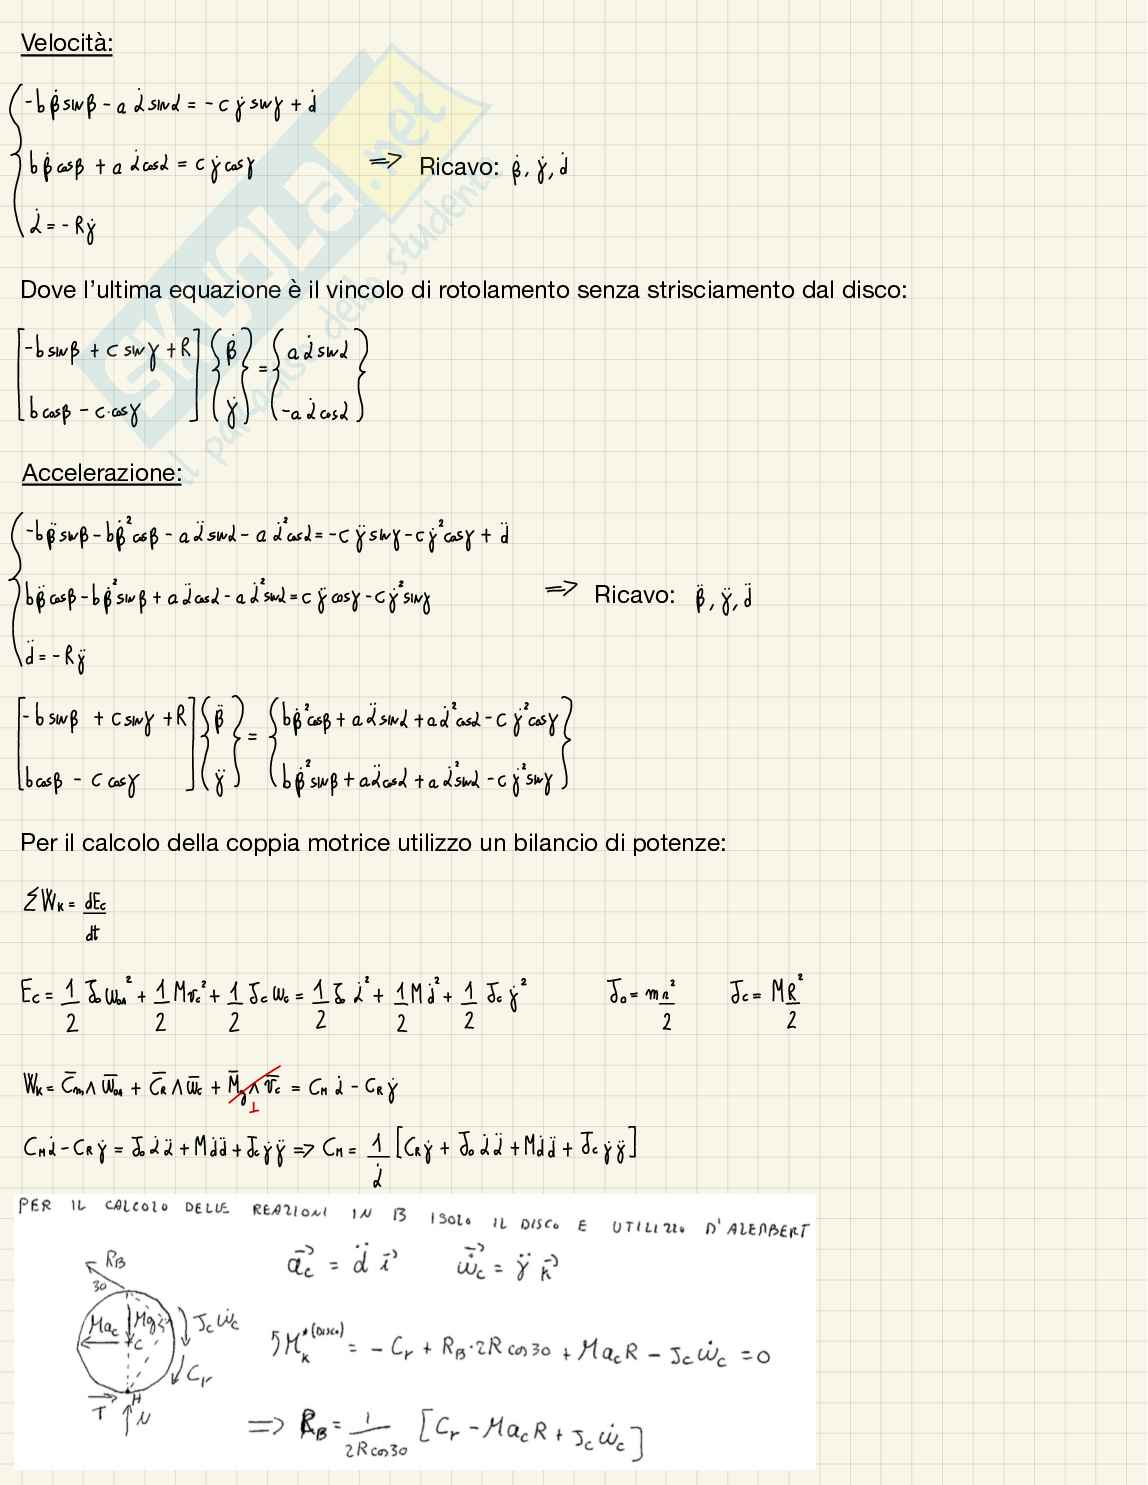 Velocità:
-bβ̇ sinβ - a α̇ sinα = -c γ̇ sinγ + ḋ
bβ̇ cosβ + a α̇ cosα = c γ̇ cosγ ⇒ Ricavo: β̇, γ̇, ḋ
α̇ = -Rγ̇
Dove l'ultima equazione è il vincolo di rotolamento senza strisciamento dal disco:
[-b sinβ + c sinγ + R] {β̇} = {a α̇ sinα}
[b cosβ - c·cosγ] {γ̇} {-a α̇ cosα}
Accelerazione:
-bβ̈ sinβ - bβ̇² cosβ - a α̈ sinα - a α̇² cosα = -c γ̈ sinγ - c γ̇² cosγ + d̈
bβ̈ cosβ - bβ̇² sinβ + a α̈ cosα - a α̇² sinα = c γ̈ cosγ - c γ̇² sinγ ⇒ Ricavo: β̈, γ̈, d̈
d̈ = -Rγ̈
[-b sinβ + c sinγ + R] {β̈} = {bβ̇² cosβ + a α̈ sinα + a α̇² cosα - c γ̇² cosγ}
[b cosβ - c cosγ] {γ̈} {bβ̇² sinβ + a α̈ cosα + a α̇² sinα - c γ̇² sinγ}
Per il calcolo della coppia motrice utilizzo un bilancio di potenze:
ΣWₖ = dEc/dt
Ec = 1/2 J₀ ω₀ₐ² + 1/2 M vc² + 1/2 Jc ωc = 1/2 J₀ α̇² + 1/2 M ḋ² + 1/2 Jc γ̇² J₀ = mR²/2 Jc = MR²/2
Wₖ = C̄m ∧ ω̄₀ₐ + C̄R ∧ ω̄c + M̄g ∧ v̄c = CM α̇ - CR γ̇
⊥
CM α̇ - CR γ̇ = J₀ α̇ α̈ + M ḋ d̈ + Jc γ̇ γ̈ ⇒ CM = 1/α̇ [CR γ̇ + J₀ α̇ α̈ + M ḋ d̈ + Jc γ̇ γ̈]
PER IL CALCOLO DELLE REAZIONI IN B ISOLO IL DISCO E UTILIZZO D'ALEMBERT
a⃗c = d̈ i⃗ ω̇⃗c = γ̈ k⃗
RB
30
Mac Mg Jc ω̇c
C
Cr
H
T N
ΣMₖ*(DISCO) = -Cr + RB·2R cos30 + Mac R - Jc ω̇c = 0
⇒ RB = 1/(2R cos30) [Cr - Mac R + Jc ω̇c]
SKUOLA.net
il paradiso dello studente